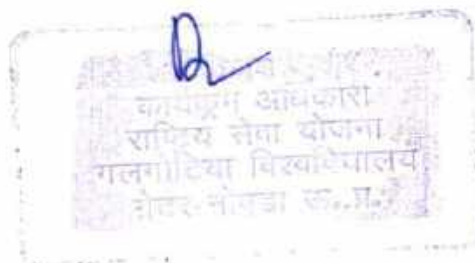 कार्यक्रम अधिकारी
राष्ट्रिय सेवा योजना
गलगोटिया विश्वविद्यालय
ग्रेटर-नोएडा उ.प्र.